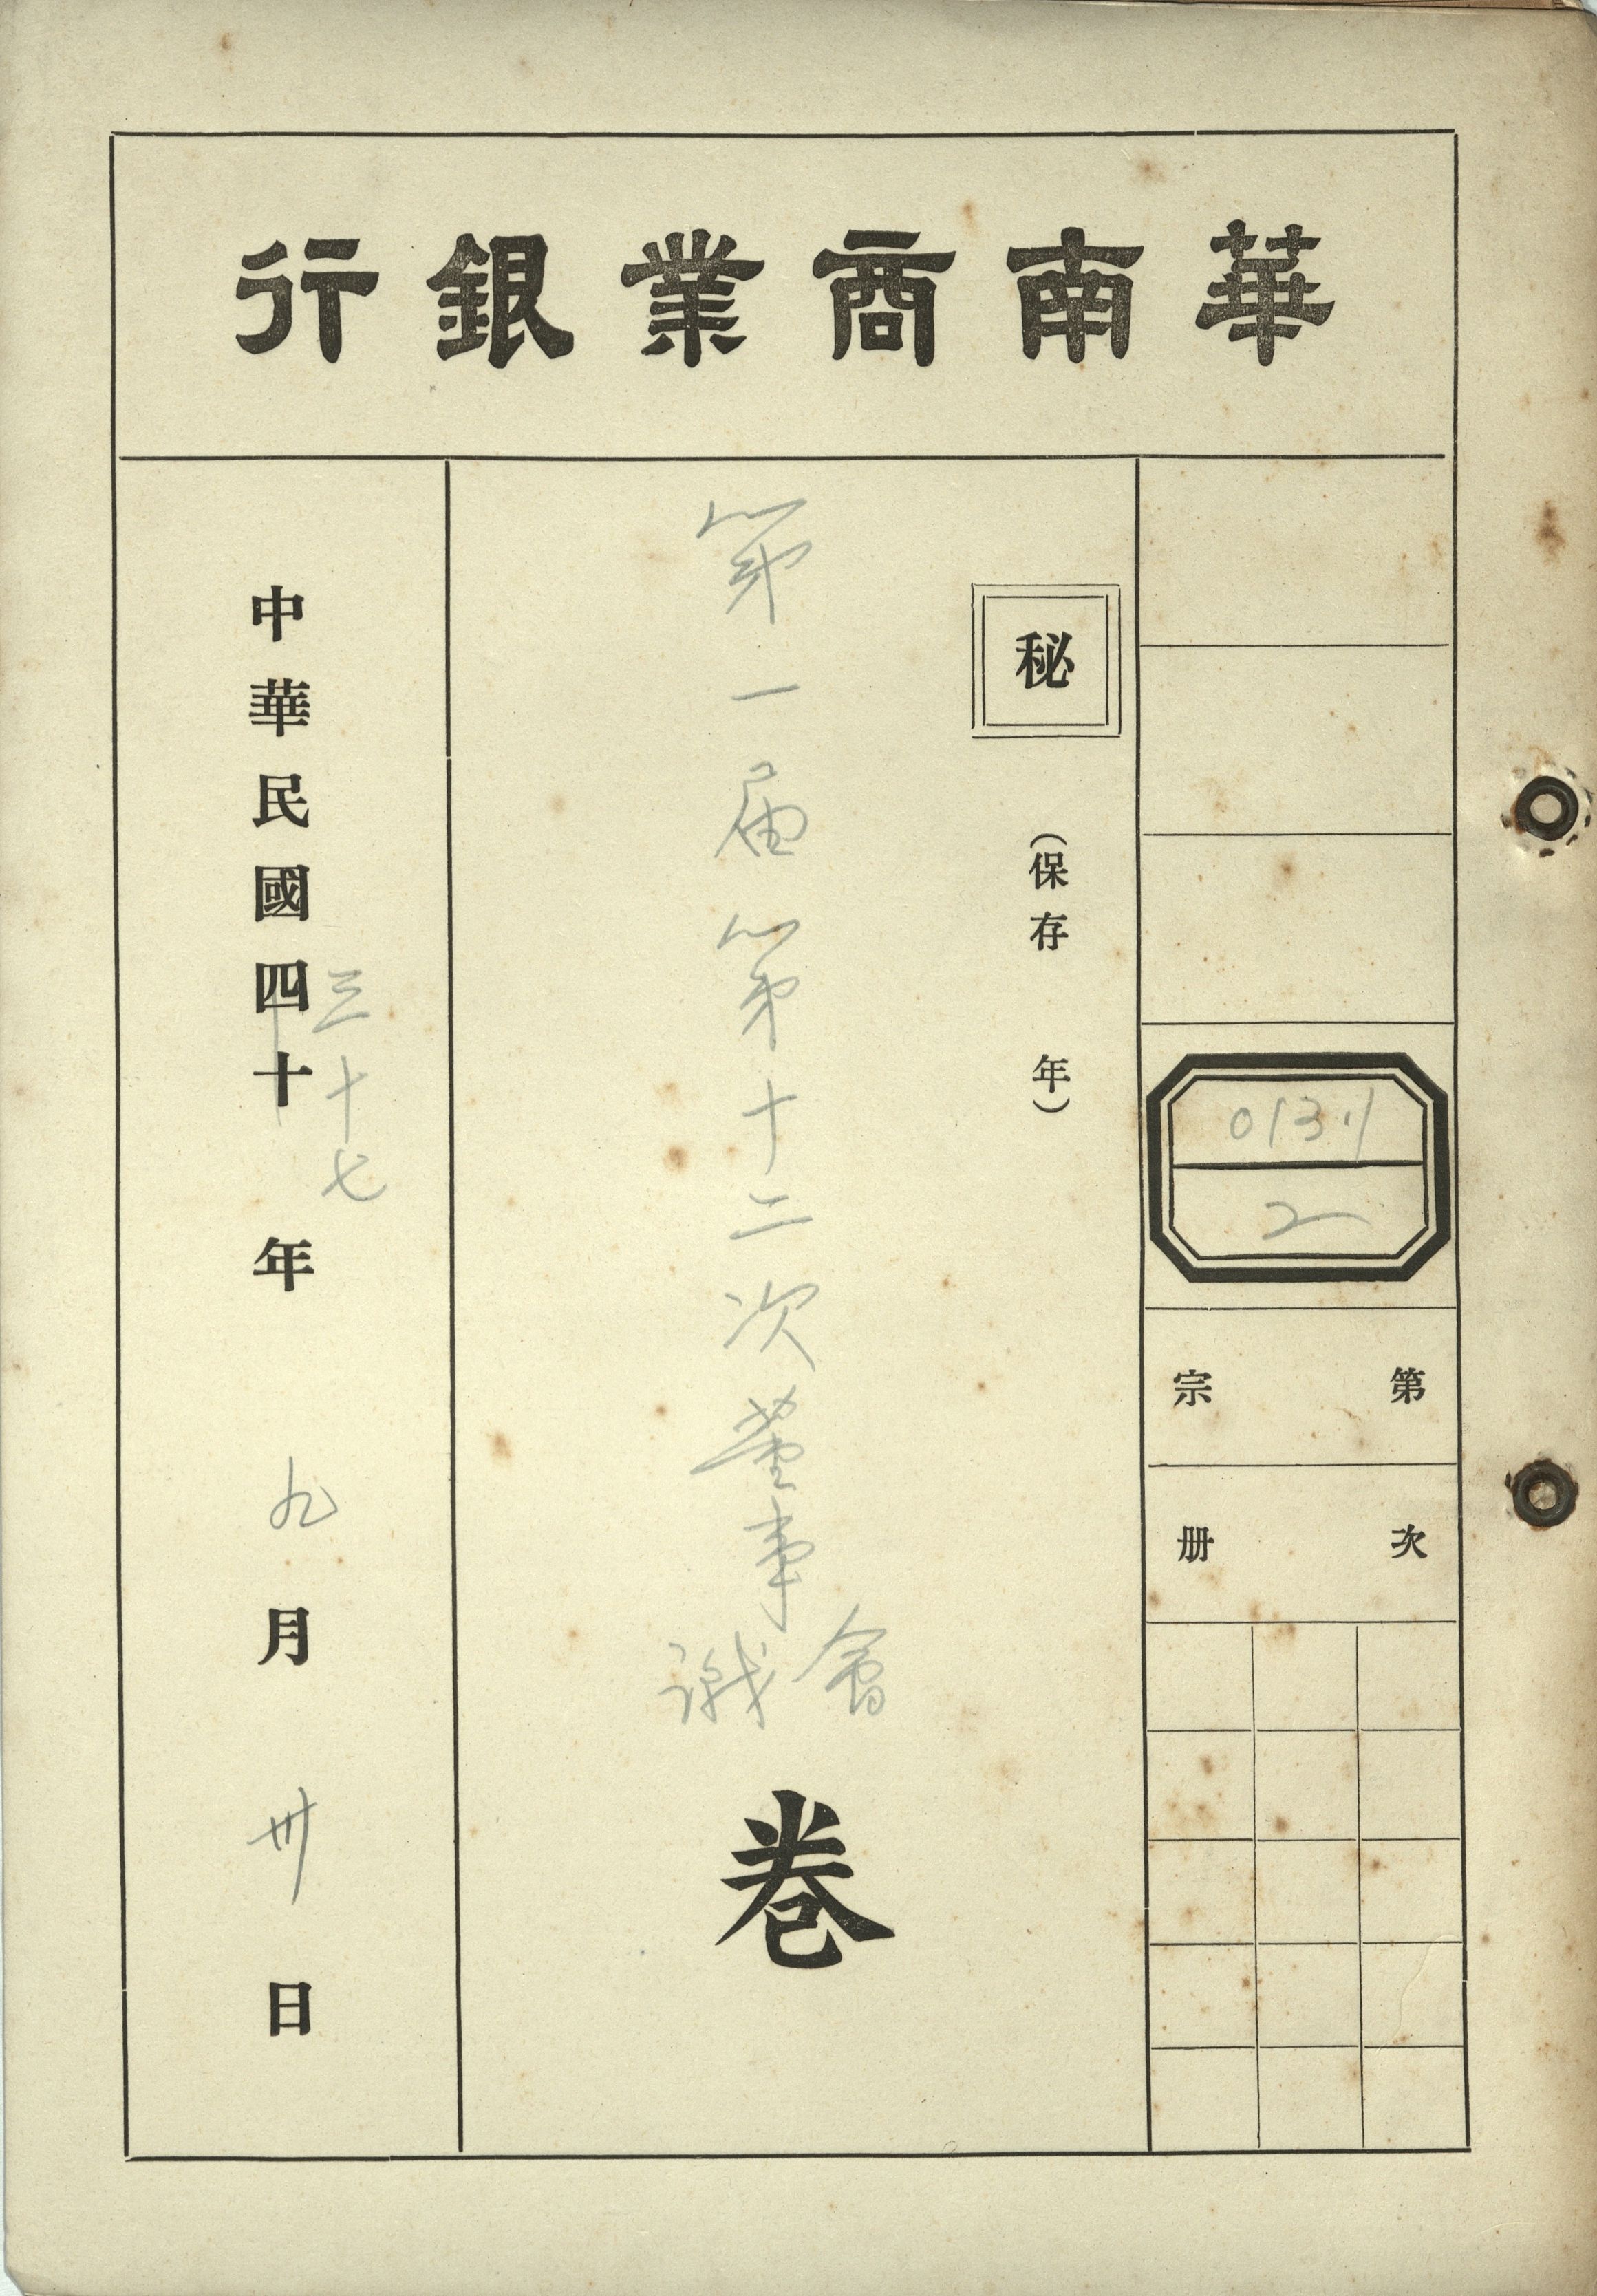 華南商業銀行
013.1
2
第 宗
次 册
秘
(保存 年)
第一屆第十二次董事會議
卷
三十七
中華民國四十年九月卅日